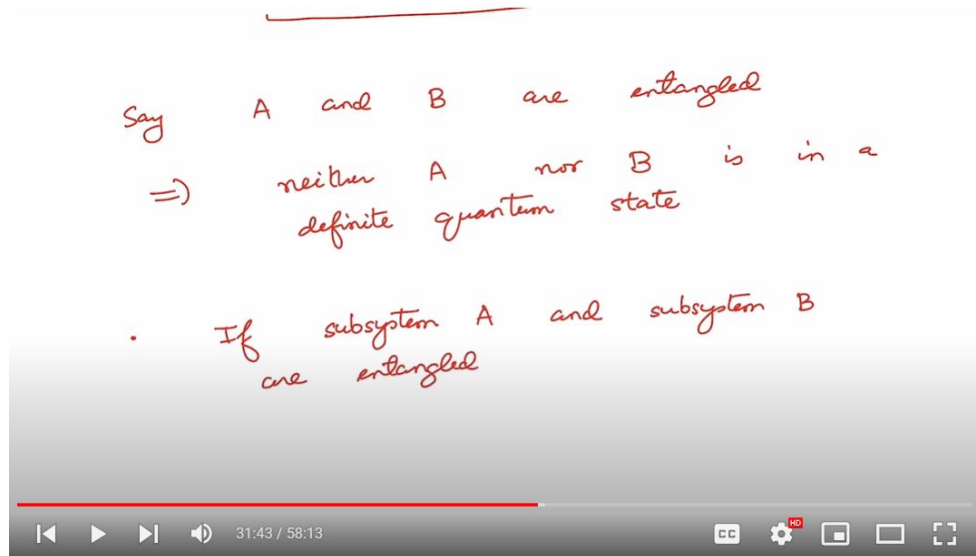 Say A and B are entangled
=) neither A nor B is in a
definite quantum state
. If subsystem A and subsystem B
are entangled
31:43 / 58:13 CC HD